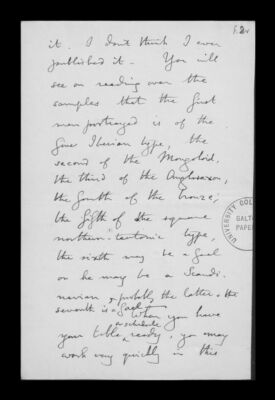 it. I don't think I ever
published it. You will
see on reading over the
samples that the first
man portrayed is of the
fine Iberian type, the
second of the Mongoloid,
the third of the Anglosaxon,
the fourth of the bronze,
the fifth of the square
northern-teutonic type,
the sixth may be a Gael
or he may be a Scandi-
navian & probly the latter & the
seventh is a Gael. When you have
your table & schedule ready, you may
work very quickly in this
UNIVERSITY COL
GALT
PAPER